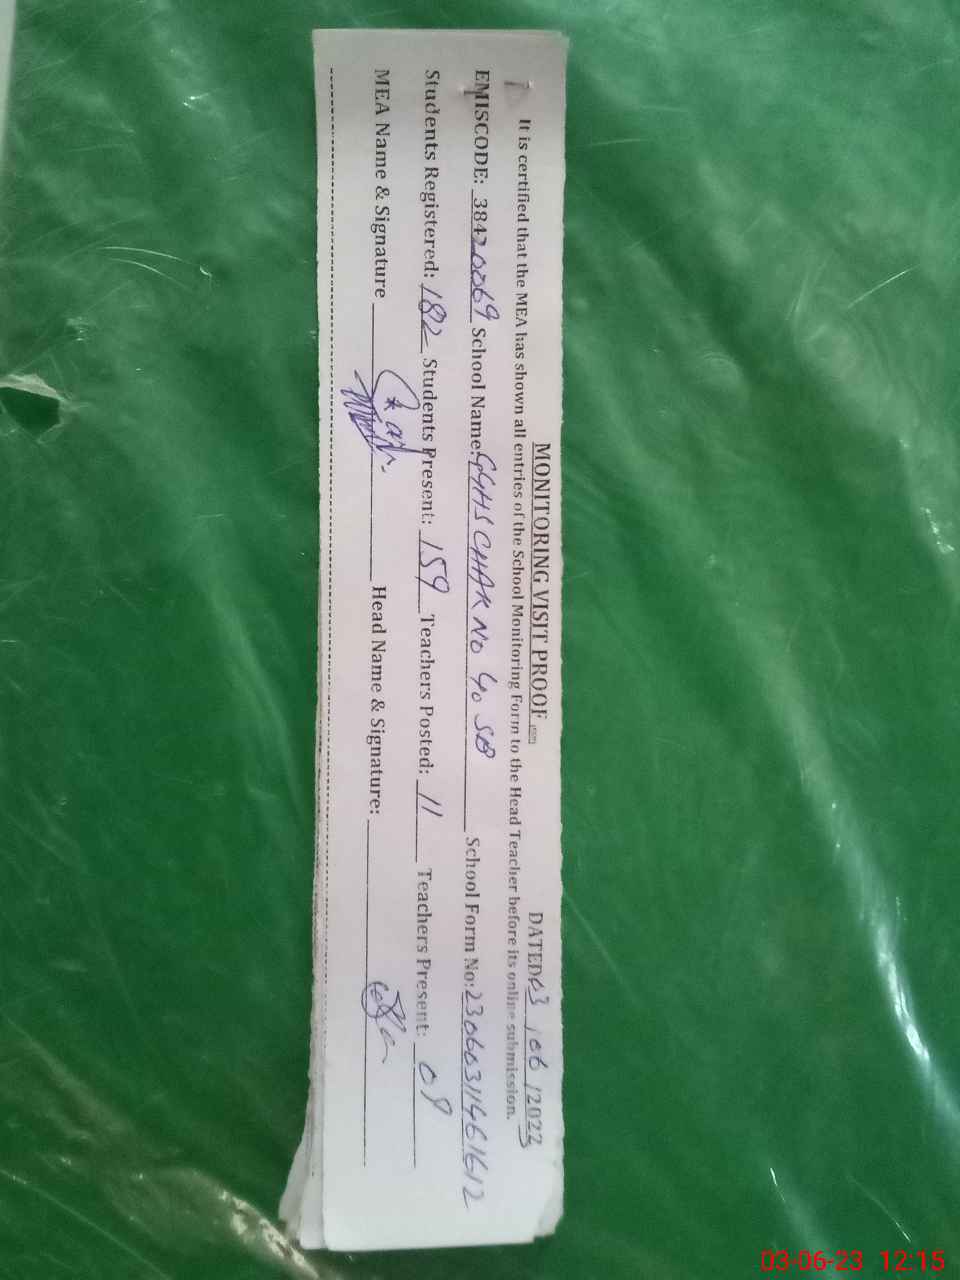 MONITORING VISIT PROOF DATED 03 / 06 / 2023
It is certified that the MEA has shown all entries of the School Monitoring Form to the Head Teacher before its online submission.
EMISCODE: 38420069 School Name: GGHS CHAK NO 40 SB School Form No: 23060311461612
Students Registered: 182 Students Present: 159 Teachers Posted: 11 Teachers Present: 08
MEA Name & Signature Head Name & Signature:
03-06-23 12:15